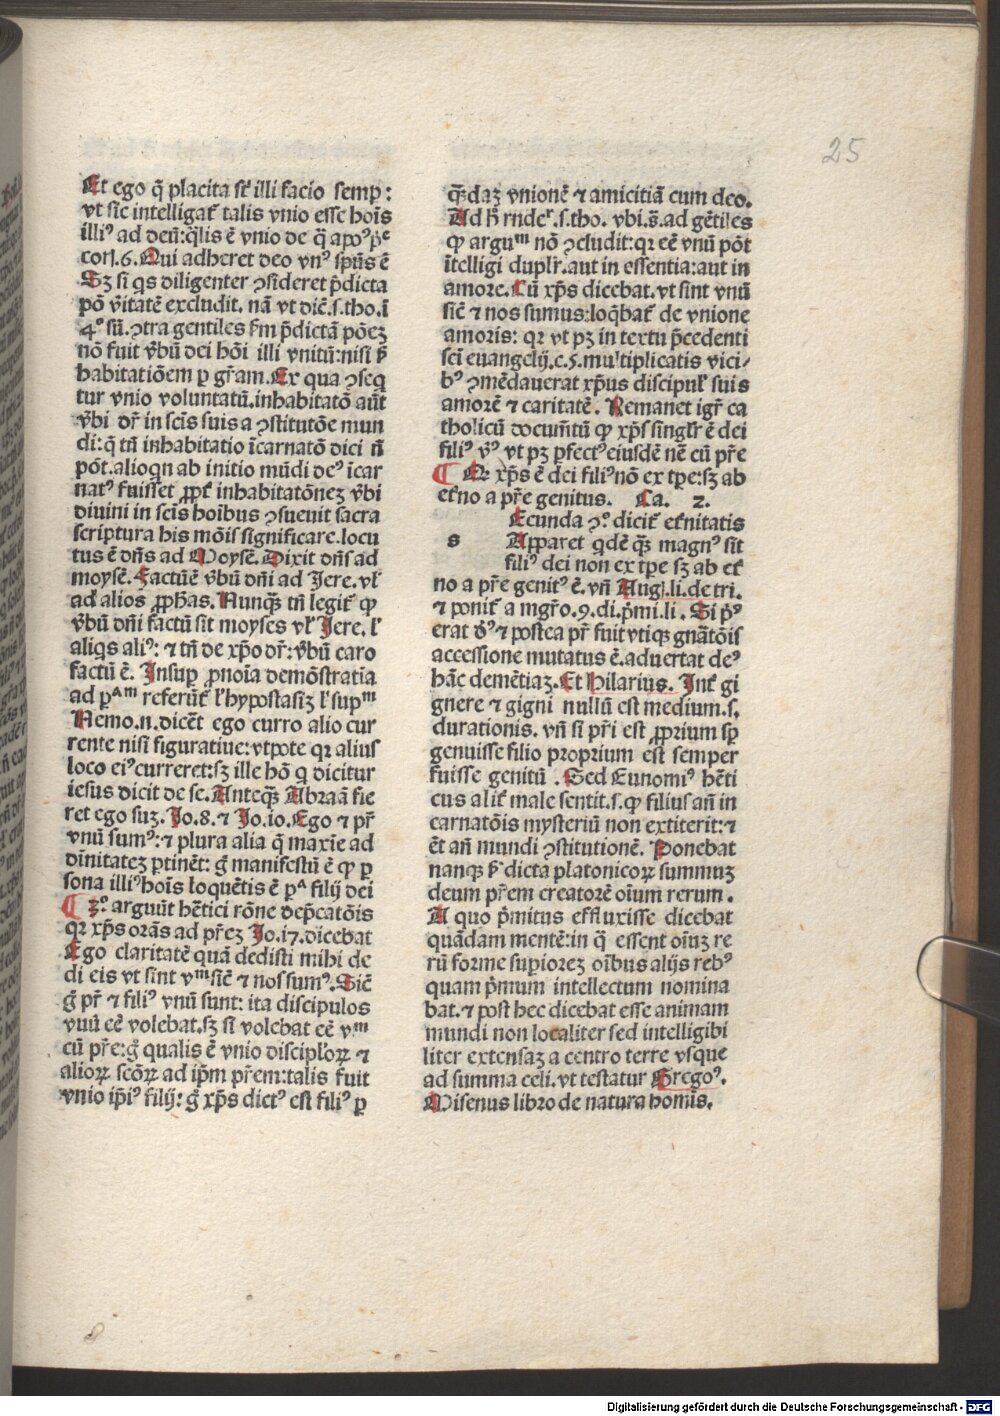 25
Et ego q̃ placita sũt illi facio semp :
vt sic intelligat᷑ talis vnio esse hoĩs
illiꝰ ad deũ:q̃lis ẽ vnio de q̃ apoꝰ p̃ᵉ
corĩ.6.Qui adheret deo vnꝰ spũs ẽ
Sꝫ si qs diligenter ꝯsideret p̃dicta
põ v̾itatẽ excludit. nã vt dic̃.s.tho.ĩ
4.º sũ.ꝯtra gentiles ẜm p̃dictã põeꝫ
nõ fuit v̾bũ dei hõi illi vnitũ:nisi ꝑ
habitatiõem ꝑ gr̃am.Ex qua ꝯseq
tur vnio voluntatũ.inhabitatõ aũt
v̾bi dr̃ in scĩs suis a ꝯstitutõe mun
di:q̃ tñ inhabitatio ĩcarnatõ dici ñ
põt.alioqn ab initio mũdi deꝰ ĩcar
natꝰ fuisset ꝓpt᷑ inhabitatõneꝫ v̾bi
diuini in scĩs hoĩbus ꝯsueuit sacra
scriptura his mõis significare.locu
tus ẽ dñs ad Moysẽ.Dixit dñs ad
moysẽ.Factũẽ v̾bũ dñi ad Jere.vl̾
ad alios ꝓph̃as.Nunqꝫ tñ legit᷑ ꝙ
v̾bũ dñi factũ sit moyses vl̾ Jere.l̾
aliqs aliꝰ: ⁊ tñ de xp̃o dr̃:v̾bũ caro
factũ ẽ. Insup ꝓnoĩa demõstratia
ad pᴬᵐ referũt᷑ l̾ hypostasiꝫ l̾ supᵐ
Nemo.n.dicẽt ego curro alio cur
rente nisi figuratiue:vtpote qꝛ alius
loco eiꝰ curreret:sꝫ ille hõ q dicitur
iesus dicit de se.Anteqꝫ Abraã fie
ret ego suꝫ.Jo.8.⁊ Jo.10.Ego ⁊ pr̃
vnũ sumꝰ:⁊ plura alia q̃ maxĩe ad
dĩnitateꝫ ꝑtinẽt: g̊ manifestũ ẽ ꝙ ꝑ
sona illiꝰ hoĩs loquẽtis ẽ pᴬ filij dei
¶ 2.º arguũt hẽtici rõne dep̃catõis
qꝛ xp̃s orãs ad pr̃eꝫ Jo.17.dicebat
Ego claritatẽ quã dedisti mihi de
di eis vt sint vᵐ sic̃ ⁊ nos sumꝰ.Sic̃
g̊ pr̃ ⁊ filiꝰ vnũ sunt: ita discipulos
vnũ eẽ volebat.sꝫ si volebat eẽ vᵐ
cũ pr̃e:g̊ qualis ẽ vnio discipl̾oꝝ ⁊
alioꝝ scõꝝ ad ip̃m pr̃em:talis fuit
vnio ip̃iꝰ filij: g̊ xp̃s dictꝰ est filiꝰ ꝑ
qꝫdaꝫ vnionẽ ⁊ amicitiã cum deo.
Ad h̾ rndeʳ.s.tho. vbi.s̃.ad gẽtiles
ꝙ arguᵐ nõ ꝯcludit:qꝛ eẽ vnũ põt
ĩtelligi duplr̃.aut in essentia:aut in
amore.Cũ xp̃s dicebat.vt sint vnũ
sic̃ ⁊ nos sumus:loq̃bat᷑ de vnione
amoris: qꝛ vt pꝫ in textu p̃cedenti
sci euangelij.c.5.multiplicatis vici/
bꝰ ꝯmẽdauerat xp̃us discipul̾ suis
amorẽ ⁊ caritatẽ. Remanet igr̃ ca
tholicũ docum̃tũ ꝙ xp̃s singl̾r ẽ dei
filiꝰ v̾ꝰ vt pꝫ ꝑfectꝰ eiusdẽ nẽ cũ pr̃e
¶ Qꝛ xp̃s ẽ dei filiꝰ nõ ex tp̃e:sꝫ ab
et᷑no a pr̃e genitus. Ca. 2.
s Ecunda ꝯº dicit᷑ et᷑nitatis
Apparet qdẽ qꝫ magnꝰ sit
filiꝰ dei non ex tp̃e sꝫ ab et᷑
no a pr̃e genitꝰ ẽ.vñ Aug.li.de tri.
⁊ ponit᷑ a mgr̃o.9.di.p̃mi.li. Si p̃ꝰ
erat d̾ꝰ ⁊ postea pr̃ fuit vtiqꝫ gnãtõis
accessione mutatus ẽ.aduertat deꝰ
hãc demẽtiaꝫ.Et Hilarius. Int᷑ gi
gnere ⁊ gigni nullũ est medium.s.
durationis. vñ si pr̃i est ꝓprium sp̃
genuisse filio proprium est semper
fuisse genitũ .Sed Eunomiꝰ hẽti
cus alit᷑ male sentit.s.ꝙ filius añ in
carnatõis mysteriũ non extiterit:⁊
ẽt añ mundi ꝯstitutionẽ. Ponebat
nanqꝫ ẜ dicta platonicoꝝ summuꝫ
deum pr̃em creatorẽ oĩum rerum.
A quo p̃mitus effluxisse dicebat
quãdam mentẽ:in q̃ essent oĩuꝫ re
rũ forme supioreꝫ oĩbus alijs rebꝰ
quam p̃mum intellectum nomina
bat.⁊ post hec dicebat esse animam
mundi non localiter sed intelligibi
liter extensaꝫ a centro terre vsque
ad summa celi.vt testatur Gregoꝰ.
Misenus libro de natura homĩs.
Digitalisierung gefördert durch die Deutsche Forschungsgemeinschaft - DFG